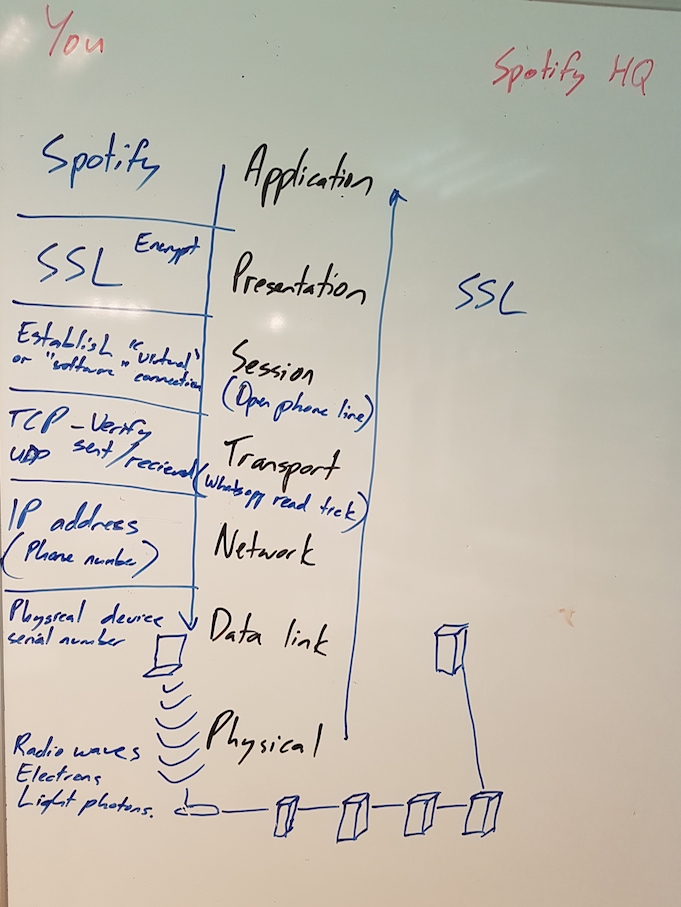 You
Spotify HQ
Spotify
Application
SSL Encrypt
Presentation
SSL
Establish "Virtual"
or "software" connection
Session
(Open phone line)
TCP - Verify
UDP sent/recieved
Transport
(Whatsapp read tick)
IP address
(Phone number)
Network
Physical device
serial number
Data link
Physical
Radio waves
Electrons
Light photons.